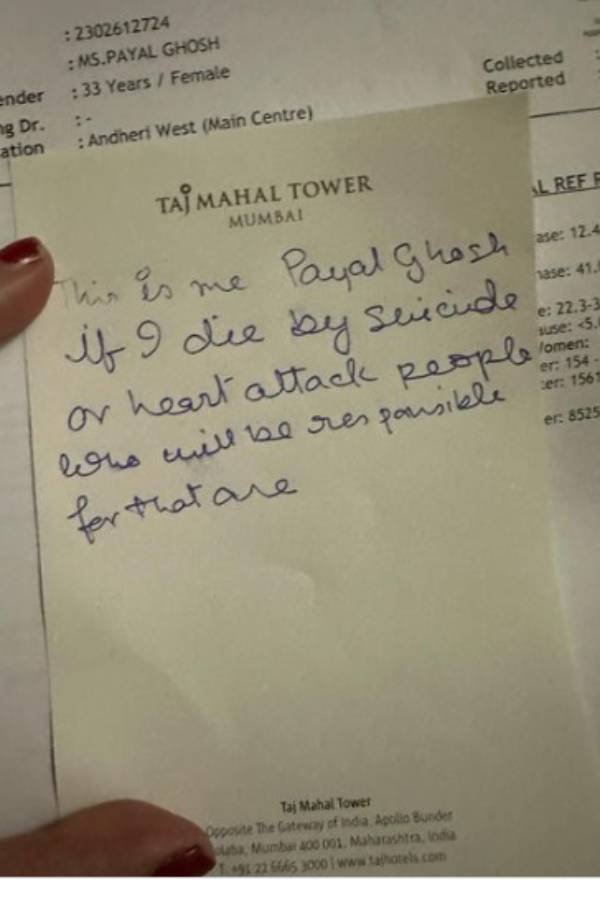 : 2302612724
: MS.PAYAL GHOSH
ender : 33 Years / Female
ng Dr. : -
ation : Andheri West (Main Centre)
Collected :
Reported :
AL REF R
TAJ MAHAL TOWER
MUMBAI
This is me Payal Ghosh
if I die by suicide
or heart attack people
who will be responsible
for that are
ase: 12.4
hase: 41.
e: 22.3-3
ause: <5.
Women:
er: 154 -
er: 1561
er: 8525
Taj Mahal Tower
Opposite The Gateway of India, Apollo Bunder
olaba, Mumbai 400 001, Maharashtra, India
T. +91 22 6665 3000 | www.tajhotels.com